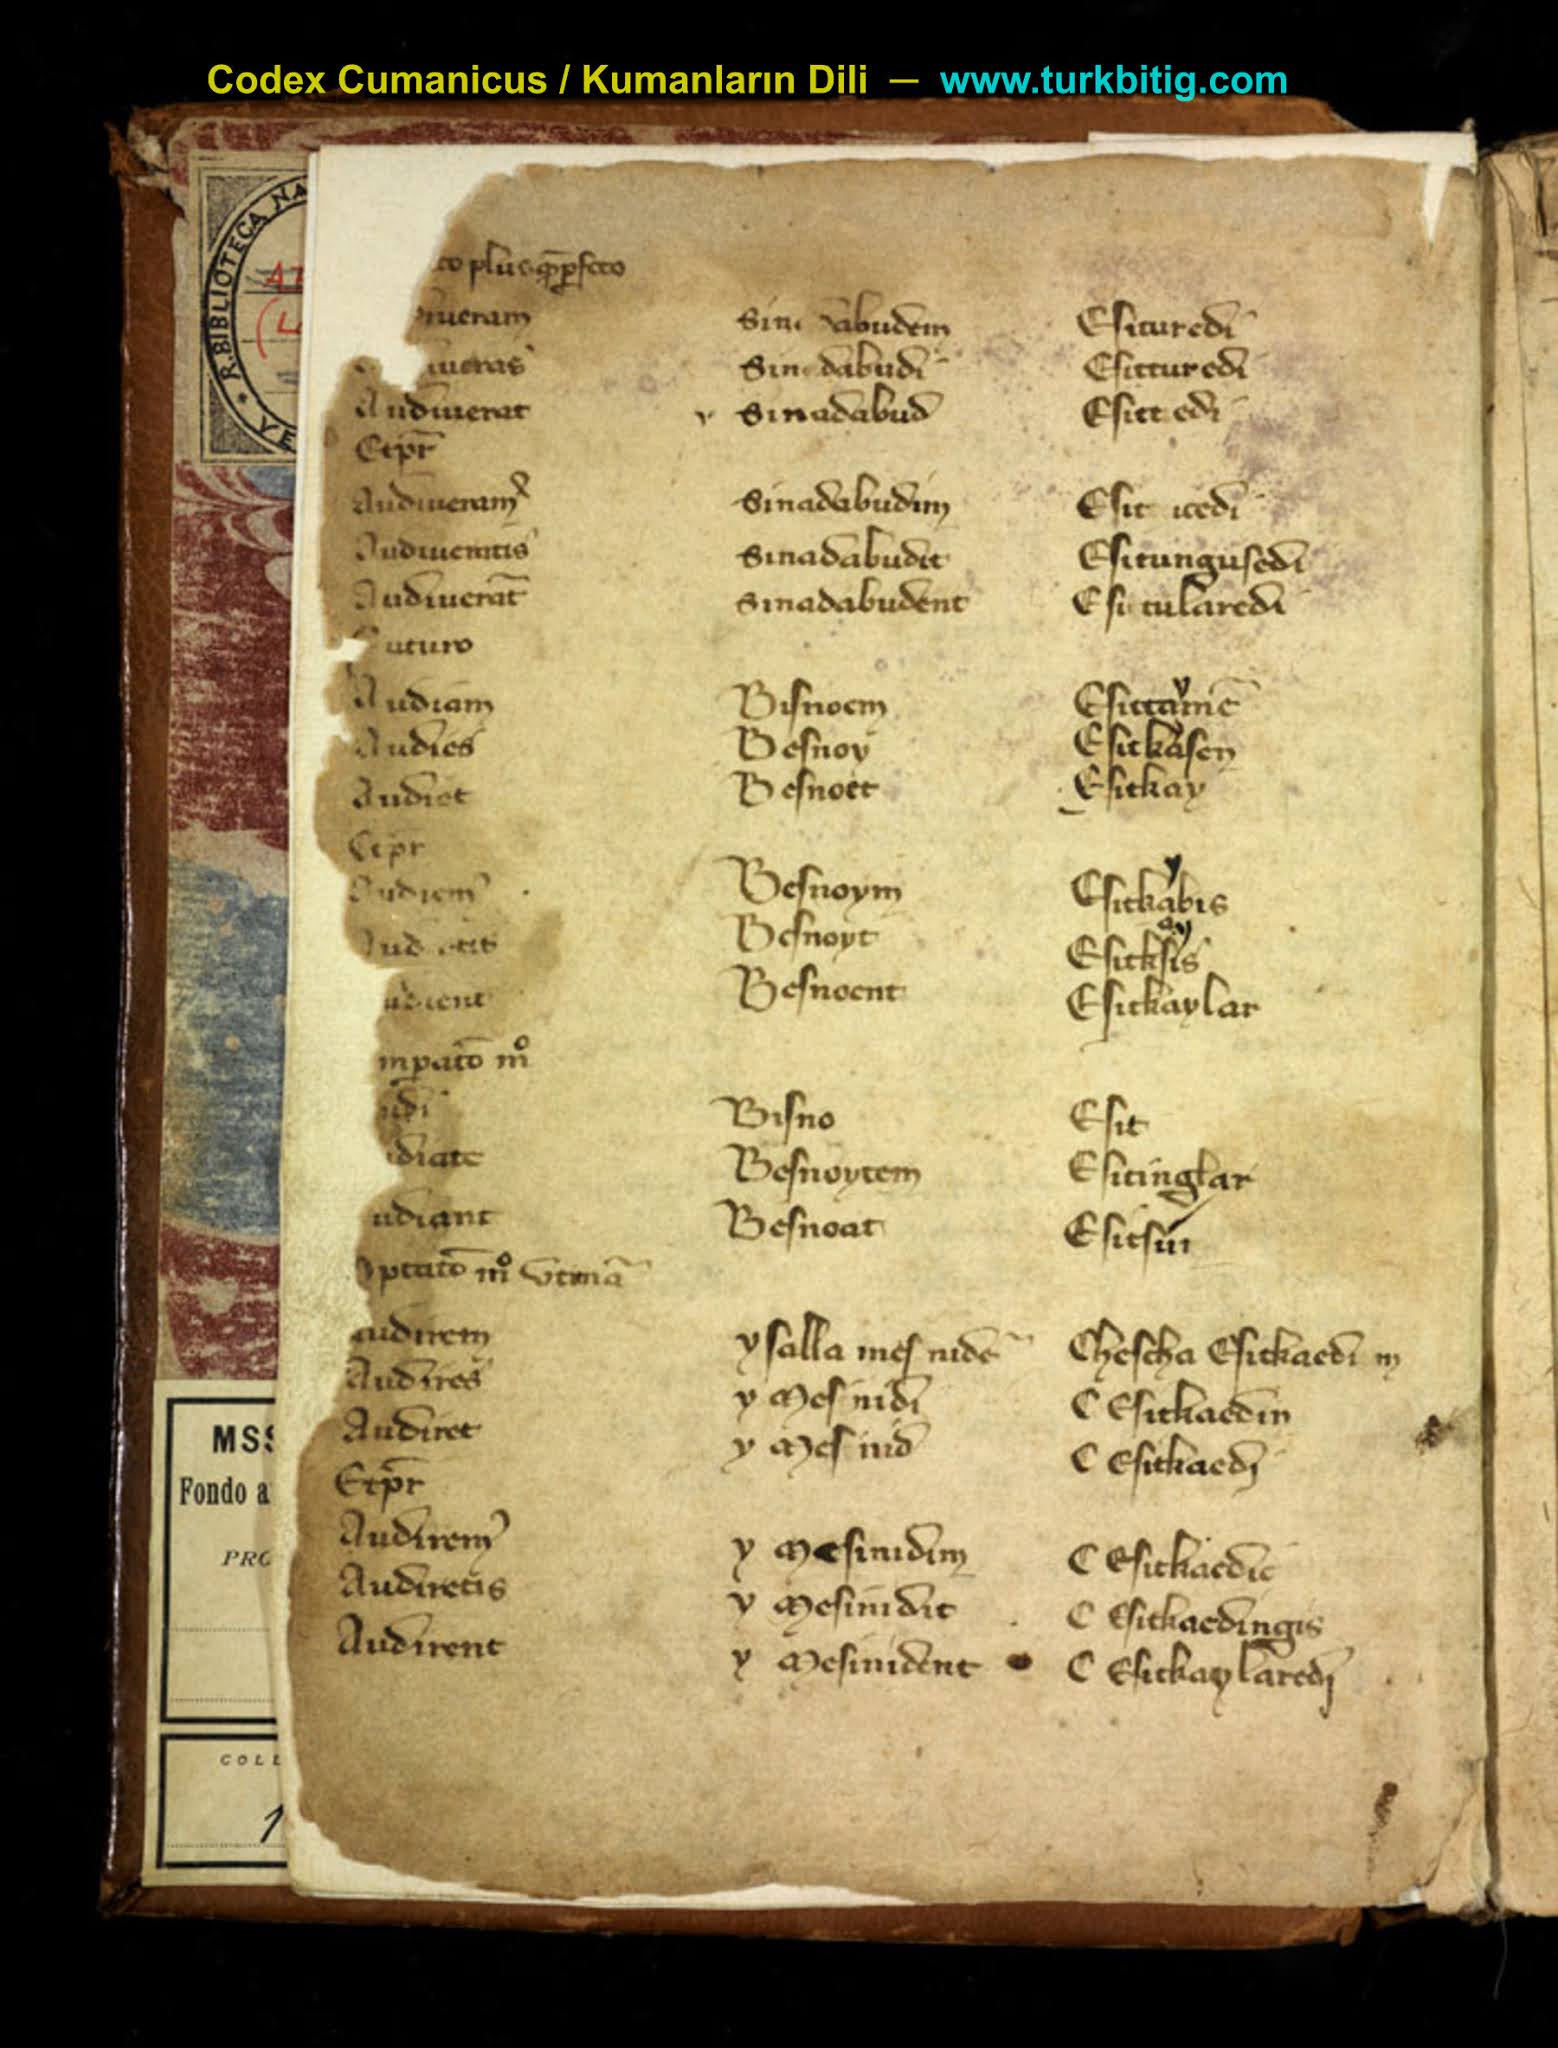 Codex Cumanicus / Kumanların Dili — www.turkbitig.com
R. BIBLIOTECA NA
VE
MSS
Fondo a
PRO
COLL
1
to plusqꝑfcto
iueram abudem Esituredi
iueras dabudi Esitturedi
Audiuerat sinadabud Esitt edi
Etpr̄
Audiueram⁹ sinadabudim Esit icedi
Audiueratis sinadabudit Esitungusedi
Audiuerāt sinadabudent Esi tularedi
uturo
Audiam Bisnoem Esittaymē
Audies Besnoy Esitkasen
Audiet Besnoet Esitkay
Etpr
Audiem⁹ Besnoym Esitkaybis
Aud etis Besnoyt Esitkaysis
udient Besnoent Esitkaylar
mꝑatō mº
udi Bisno Esit
udiate Besnoytem Esitinglar
udiant Besnoat Esitsin
ptatō mº Vtinā
Audirem ysalla mes nidē Chescha Esitkaedi m
Audires y mes nidi C Esitkaedin
Audiret y mes nid C Esitkaedi
Etpr̄
Audirem⁹ y mesinidim C Esitkaedic
Audiretis y mesinidit C Esitkaedingis
Audirent y mesinident C Esitkaylaredi